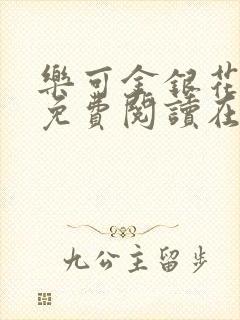 樂可金銀花
免費閱讀在
九公主留步